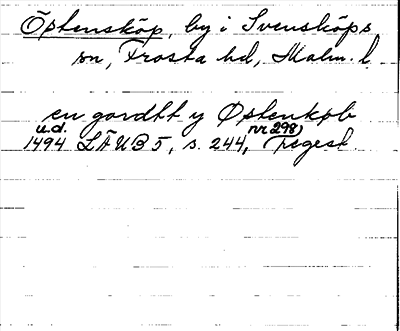 Östensköp, by i Svensköps
sn, Frosta hd, Malm. l.
en gordtt y Østenkøb
u.d. nr 298)
1494 LÄUB 5, s. 244, regest